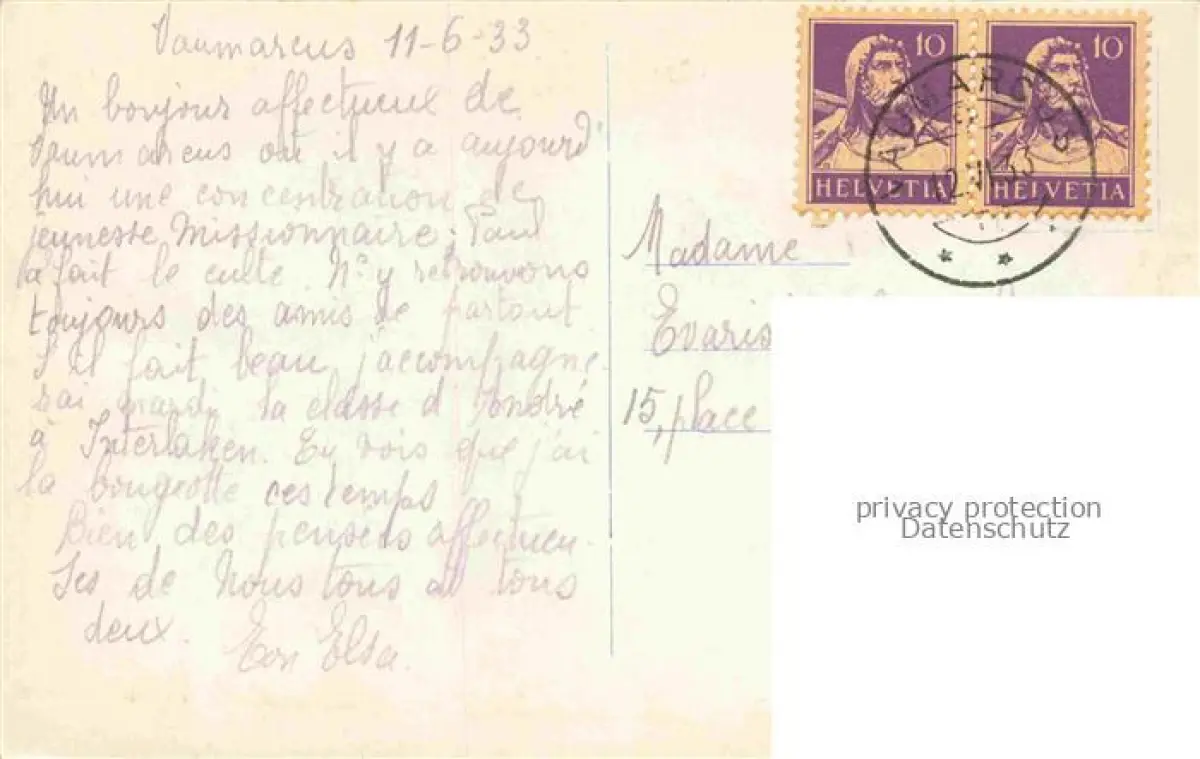 Vaumarcus 11-6-33
Un bonjour affectueux de
Vaumarcus où il y a aujourd'
hui une concentration de
jeunesse Missionnaire. Paul
a fait le culte Ns y retrouvons
toujours des amis de partout.
S'il fait beau j'accompagne-
rai mardi la classe d'André
à Interlaken. Tu vois que j'ai
la bougeotte ces temps
Bien des pensées affectueu-
ses de Nous tous à tous
deux.
Ton Elsa.
10 10
HELVETIA HELVETIA
VAUMARCUS
12.VI.33
Madame
Evaris
15, place
privacy protection
Datenschutz